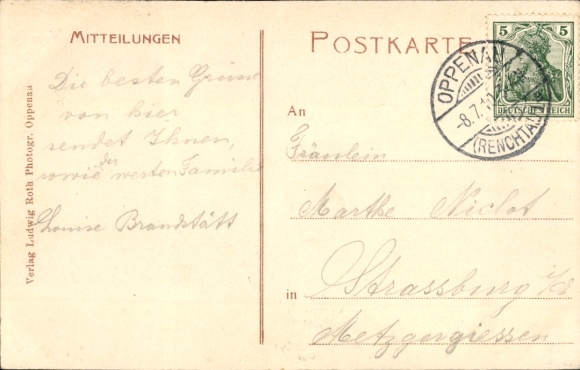 MITTEILUNGEN
Die besten Grüsse
von hier
sendet Ihnen,
sowie der werten Familie
Louise Brandstätt
Verlag Ludwig Roth Photogr. Oppenau
POSTKARTE
5 5
DEUTSCHES REICH
OPPENAU
-8.7.10
(RENCHTAL)
An
Fräulein
Marthe Niclot
in Strassburg i/E
Metzgergiessen